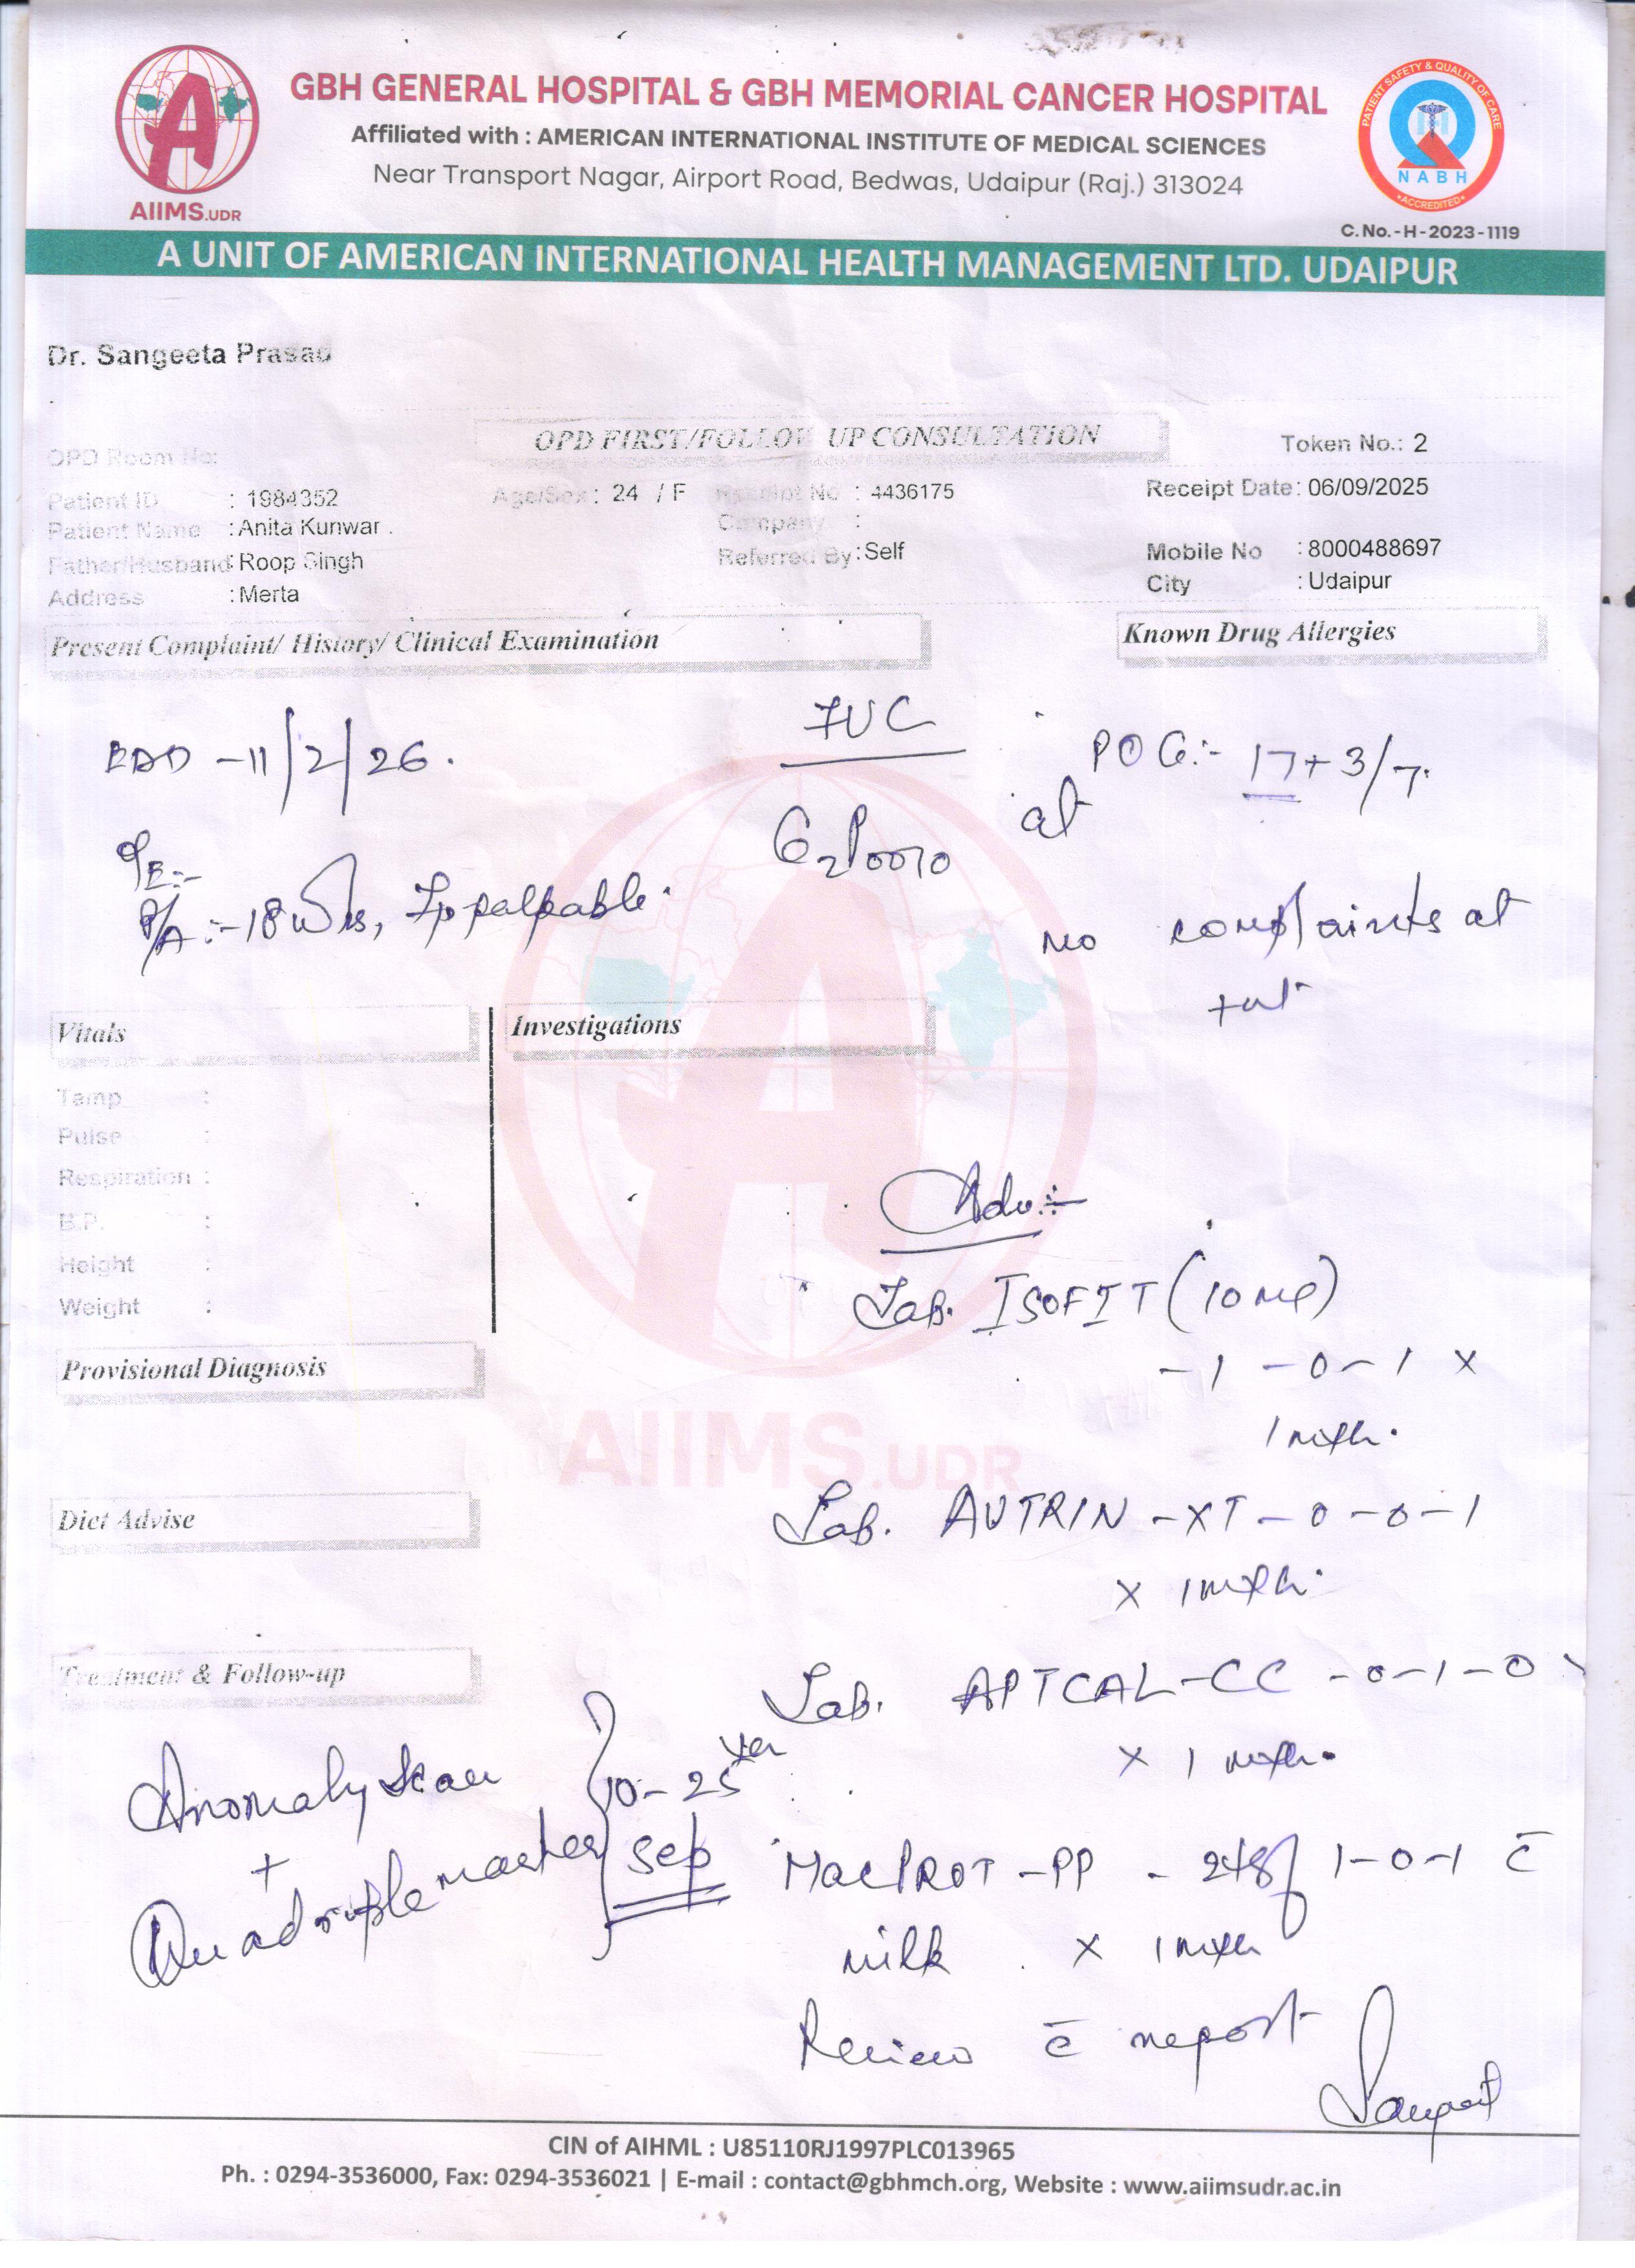 GBH GENERAL HOSPITAL & GBH MEMORIAL CANCER HOSPITAL
Affiliated with : AMERICAN INTERNATIONAL INSTITUTE OF MEDICAL SCIENCES
Near Transport Nagar, Airport Road, Bedwas, Udaipur (Raj.) 313024
AIIMS.UDR
PATIENT SAFETY & QUALITY OF CARE
NABH
ACCREDITED
C.No.-H-2023-1119
A UNIT OF AMERICAN INTERNATIONAL HEALTH MANAGEMENT LTD. UDAIPUR
Dr. Sangeeta Prasad
OPD FIRST/FOLLOW UP CONSULTATION
Token No.: 2
OPD Room No:
Patient ID : 1984352 Age/Sex : 24 / F Receipt No : 4436175 Receipt Date: 06/09/2025
Patient Name : Anita Kunwar . Company :
Father/Husband : Roop Singh Referred By : Self Mobile No : 8000488697
Address : Merta City : Udaipur
Present Complaint/ History/ Clinical Examination Known Drug Allergies
FUC
EDD -11/2/26. POG:- 17+3/7.
G2P0010 at
O/E:-
P/A:-18 wks, palpable.
no complaints at
Vitals Investigations
Temp :
Pulse :
Respiration :
B.P. :
Height :
Weight :
Adv:-
Tab. ISOFIT (10 mg)
-1 -0-1 x
1 mth.
Provisional Diagnosis
Diet Advise
Tab. AUTRIN-XT-0-0-1
x 1 mth.
Treatment & Follow-up
Tab. APTCAL-CC -0-1-0
x 1 mth.
Anomaly scan
+
Quadruple marker
10-25
Sep
MACPROT-PP - 1-0-1 c̄
milk x 1 mth
Review c̄ report
AIIMS.UDR
CIN of AIHML : U85110RJ1997PLC013965
Ph. : 0294-3536000, Fax: 0294-3536021 | E-mail : contact@gbhmch.org, Website : www.aiimsudr.ac.in